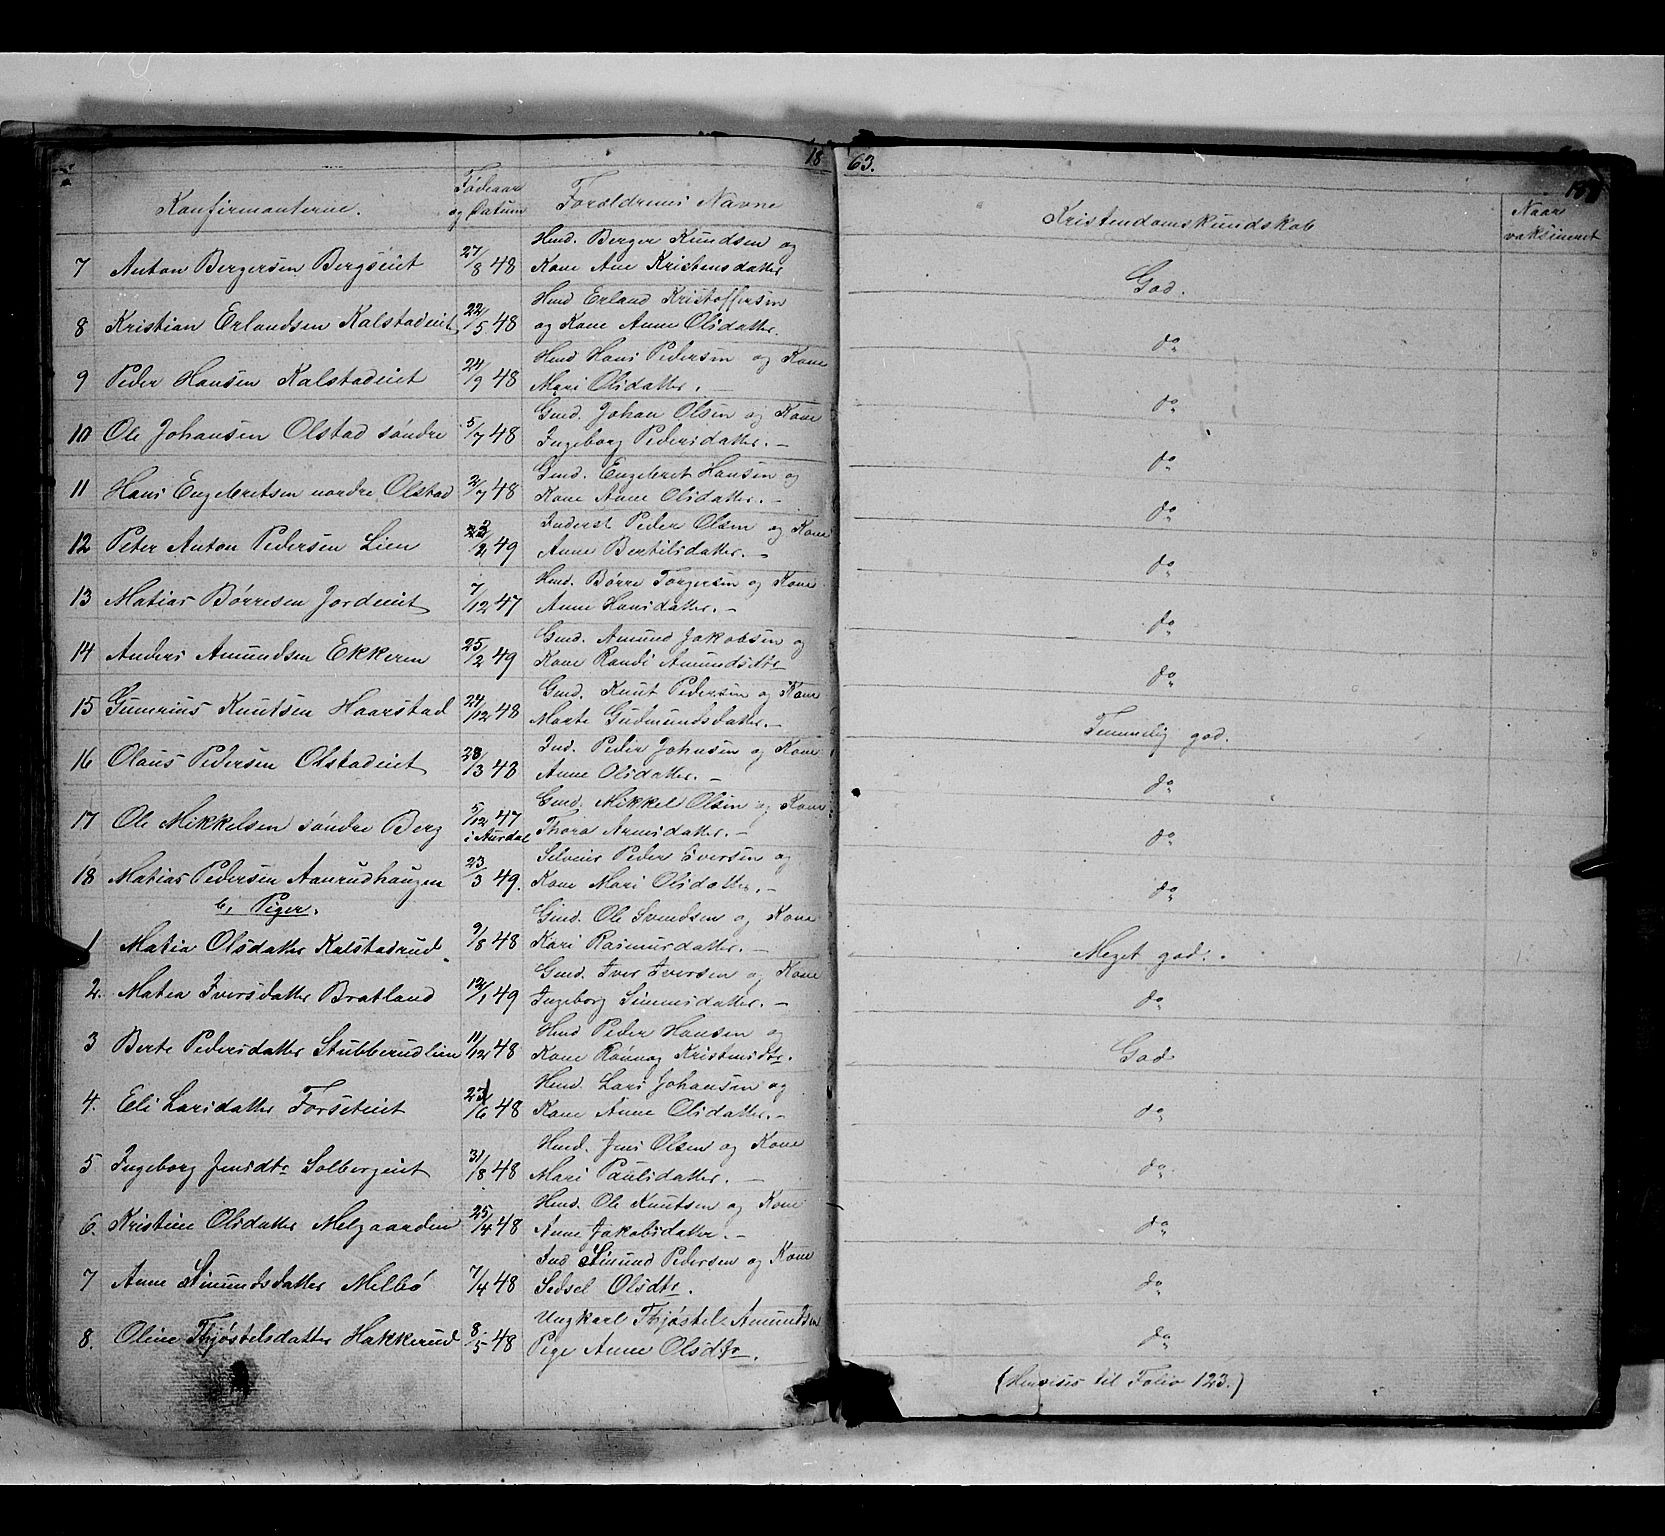 18 63.
Konfirmanterne.
Födeaar og Datum
Forældrenes Navne
Kristendomskundskab
Naar vaksineret
7 Anton Bergersen Bergseiet 27/8 48 Hmd. Berger Kundsen og
Kone Ane Kristensdatter
God.
8 Kristian Erlandsen Kalstadeiet 22/5 48 Hmd Erland Kristoffersen
og Kone Anne Olsdatter.
do
9 Peder Hansen Kalstadeiet 24/9 48 Hmd Hans Pedersen og Kone
Mari Olsdatter. –
do
10 Ole Johansen Olstad söndre 5/7 48 Gmd. Johan Olsen og Kone
Ingeborg Pedersdatter. –
do
11 Hans Engebretsen nordre Olstad 2/7 48 Gmd. Engebret Hansen og
Kone Anne Olsdatter. –
do
12 Peter Anton Pedersen Lien 2/2 49 Inderst Peder Olsen og Kone
Anne Bertilsdatter. –
do
13 Matias Börresen Jordeiet 7/12 47 Hmd. Börre Torgersen og Kone
Anne Hansdatter. –
do
14 Anders Amundsen Ekkeren 25/2 49 Gmd. Amund Jakobsen og
Kone Randi Amundsdtr
do
15 Gunerius Knutsen Haarstad 24/12 48 Gmd. Knut Pedersen og Kone
Marte Gudmundsdatter. –
Temmelig god.
16 Olaus Pedersen Olstadeiet 23/3 48 Ind. Peder Johnsen og Kone
Anne Olsdatter. –
do
17 Ole Mikkelsen söndre Berg 5/12 47 i Aurdal Gmd. Mikkel Olsen og Kone
Thora Arnesdatter. –
do
18 Matias Pedersen Aanrudhaugen 23/3 49. Selveier Peder Iversen og
Kone Mari Olsdatter. –
do
b, Piger.
1 Matea Olsdatter Kalstadrud. 9/8 48 Gmd. Ole Svendsen og Kone
Kari Rasmusdatter. –
Meget god.
2. Matea Iversdatter Bratland 12/1 49 Gmd. Iver Iversen og Kone
Ingeborg Simensdatter. –
do
3 Berte Pedersdatter Stubberudlien 11/12 48 Hmd Peder Hansen og
Kone Rönnog Kristensdtr.
God
4. Eli Larsdatter Forseteiet /6 48 Hmd. Lars Johansen og
Kone Anne Olsdatter. –
do
5 Ingeborg Jensdtr Solbergeiet 31/8 48 Hmd. Jens Olsen og Kone
Mari Paulsdatter. –
do
6. Kristine Olsdatter Melgaarden 25/4 48 Hmd. Ole Knutsen og Kone
Anne Jakobsdatter. –
do
7 Anne Simundsdatter Melbö 7/4 48 Ind Simund Pedersen og Kone
Sedsel Olsdtr.
do
8. Oline Thjöstelsdatter Hakkerud 8/5 48 Ungkarl Thjöstel Amundsen
Pige Anne Olsdtr.
do
(Henvises til Folio 123.)